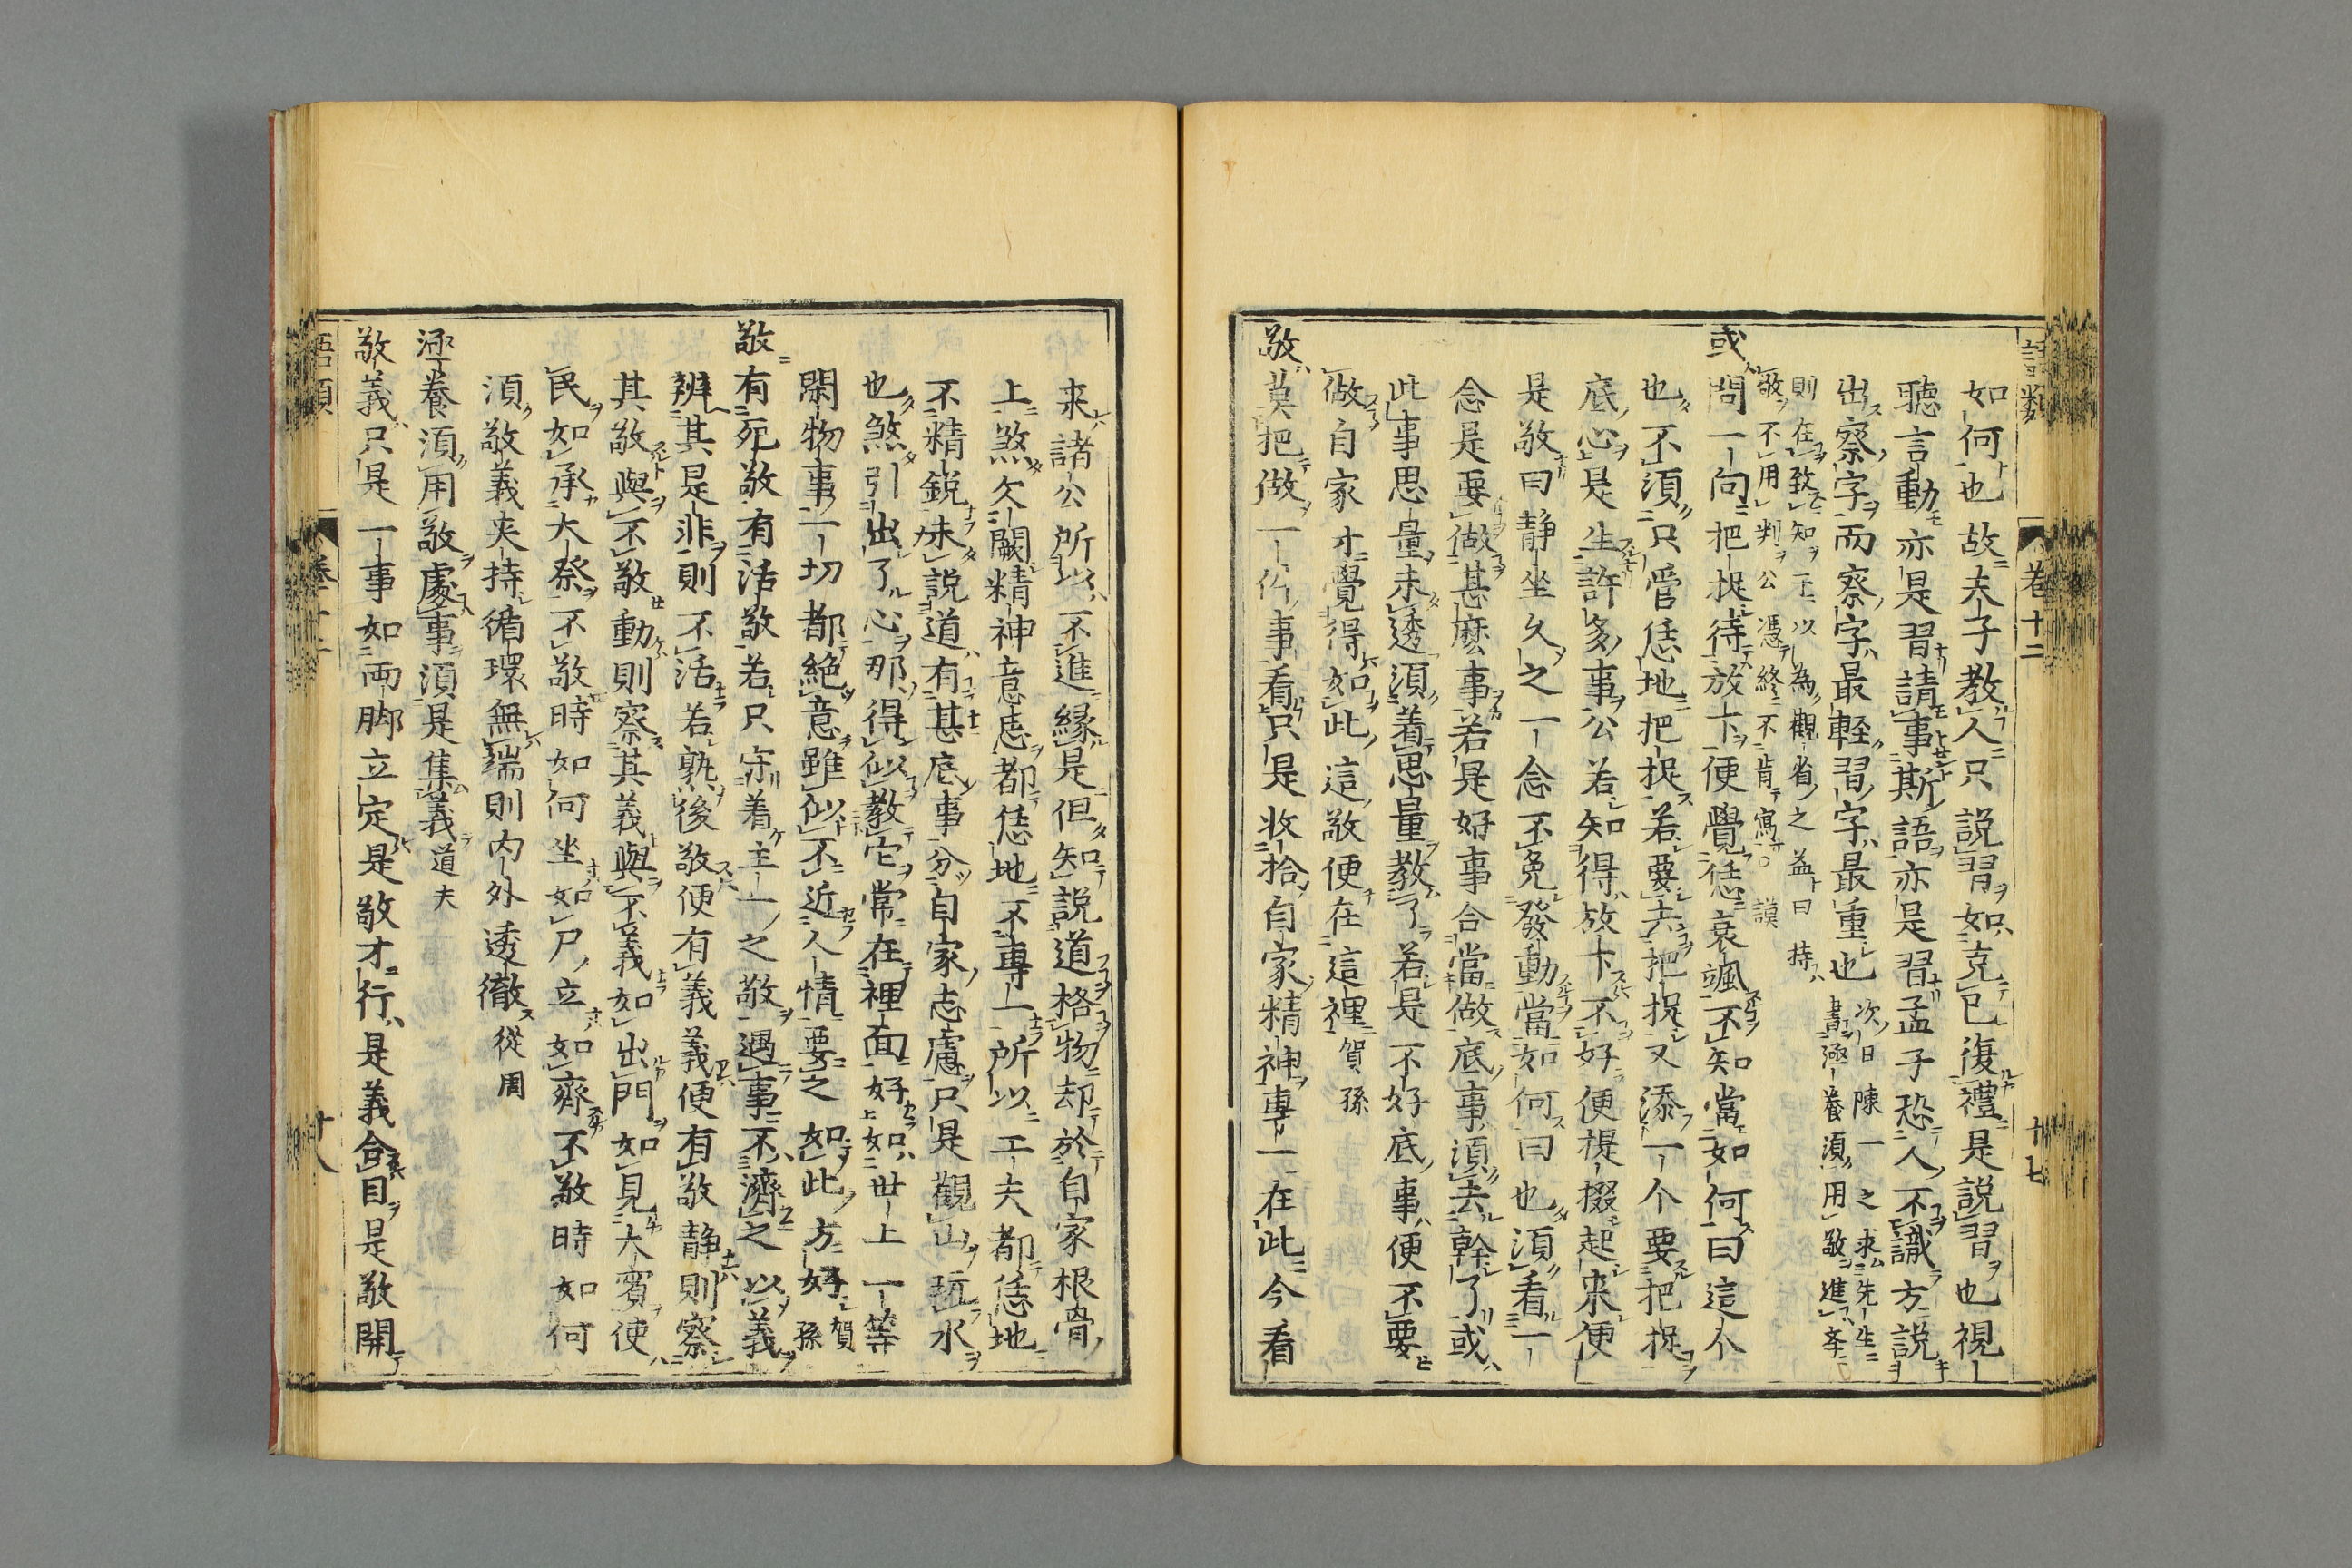 語類 卷十二 十七
如何也故夫子教人只説習如克己復禮是説習也視
聽言動亦是習請事斯語亦是習孟子恐人不識方説
出察字而察字最輕習字最重也
次日陳一之求先生
書涵養須用敬進斈
則在致知 以為觀省之益曰持
敬不用判公憑終不肯寫○謨
或問一向把捉待放下便覺恁衰颯不知當如何曰這个
也不須只管恁地把捉若要去把捉又添一个要把捉
底心是生許多事公若知得放下不好便提掇起来便
是敬曰静坐久之一念不免發動當如何曰也須看一
念是要做甚麽事若是好事合當做底事須去幹了或
此事思量未透須着思量教了若是不好底事便不要
做自家才覺得如此這敬便在這裡賀孫
敬莫把做一件事看只是收拾自家精神專一在此今看
来諸公所以不進縁是但知説道格物却於自家根骨
上煞欠闕精神意思都恁地不專一所以工夫都恁地
不精鋭未説道有甚底事分自家志慮只是觀山玩水
也煞引出了心那得似教它常在裡面好如世上一等
閑物事一切都絶意雖似不近人情要之如此方好賀孫
敬有死敬有活敬若只守着主一之敬遇事不濟之以義
辨其是非則不活若熟後敬便有義義便有敬静則察
其敬與不敬動則察其義與不義如出門如見大賓使
民如承大祭不敬時如何坐如尸立如齊不敬時如何
須敬義夾持循環無端則内外透徹從周
涵養須用敬處事須是集義道夫
敬義只是一事如両脚立定是敬才行是義合目是敬開
語類 卷十二 十八